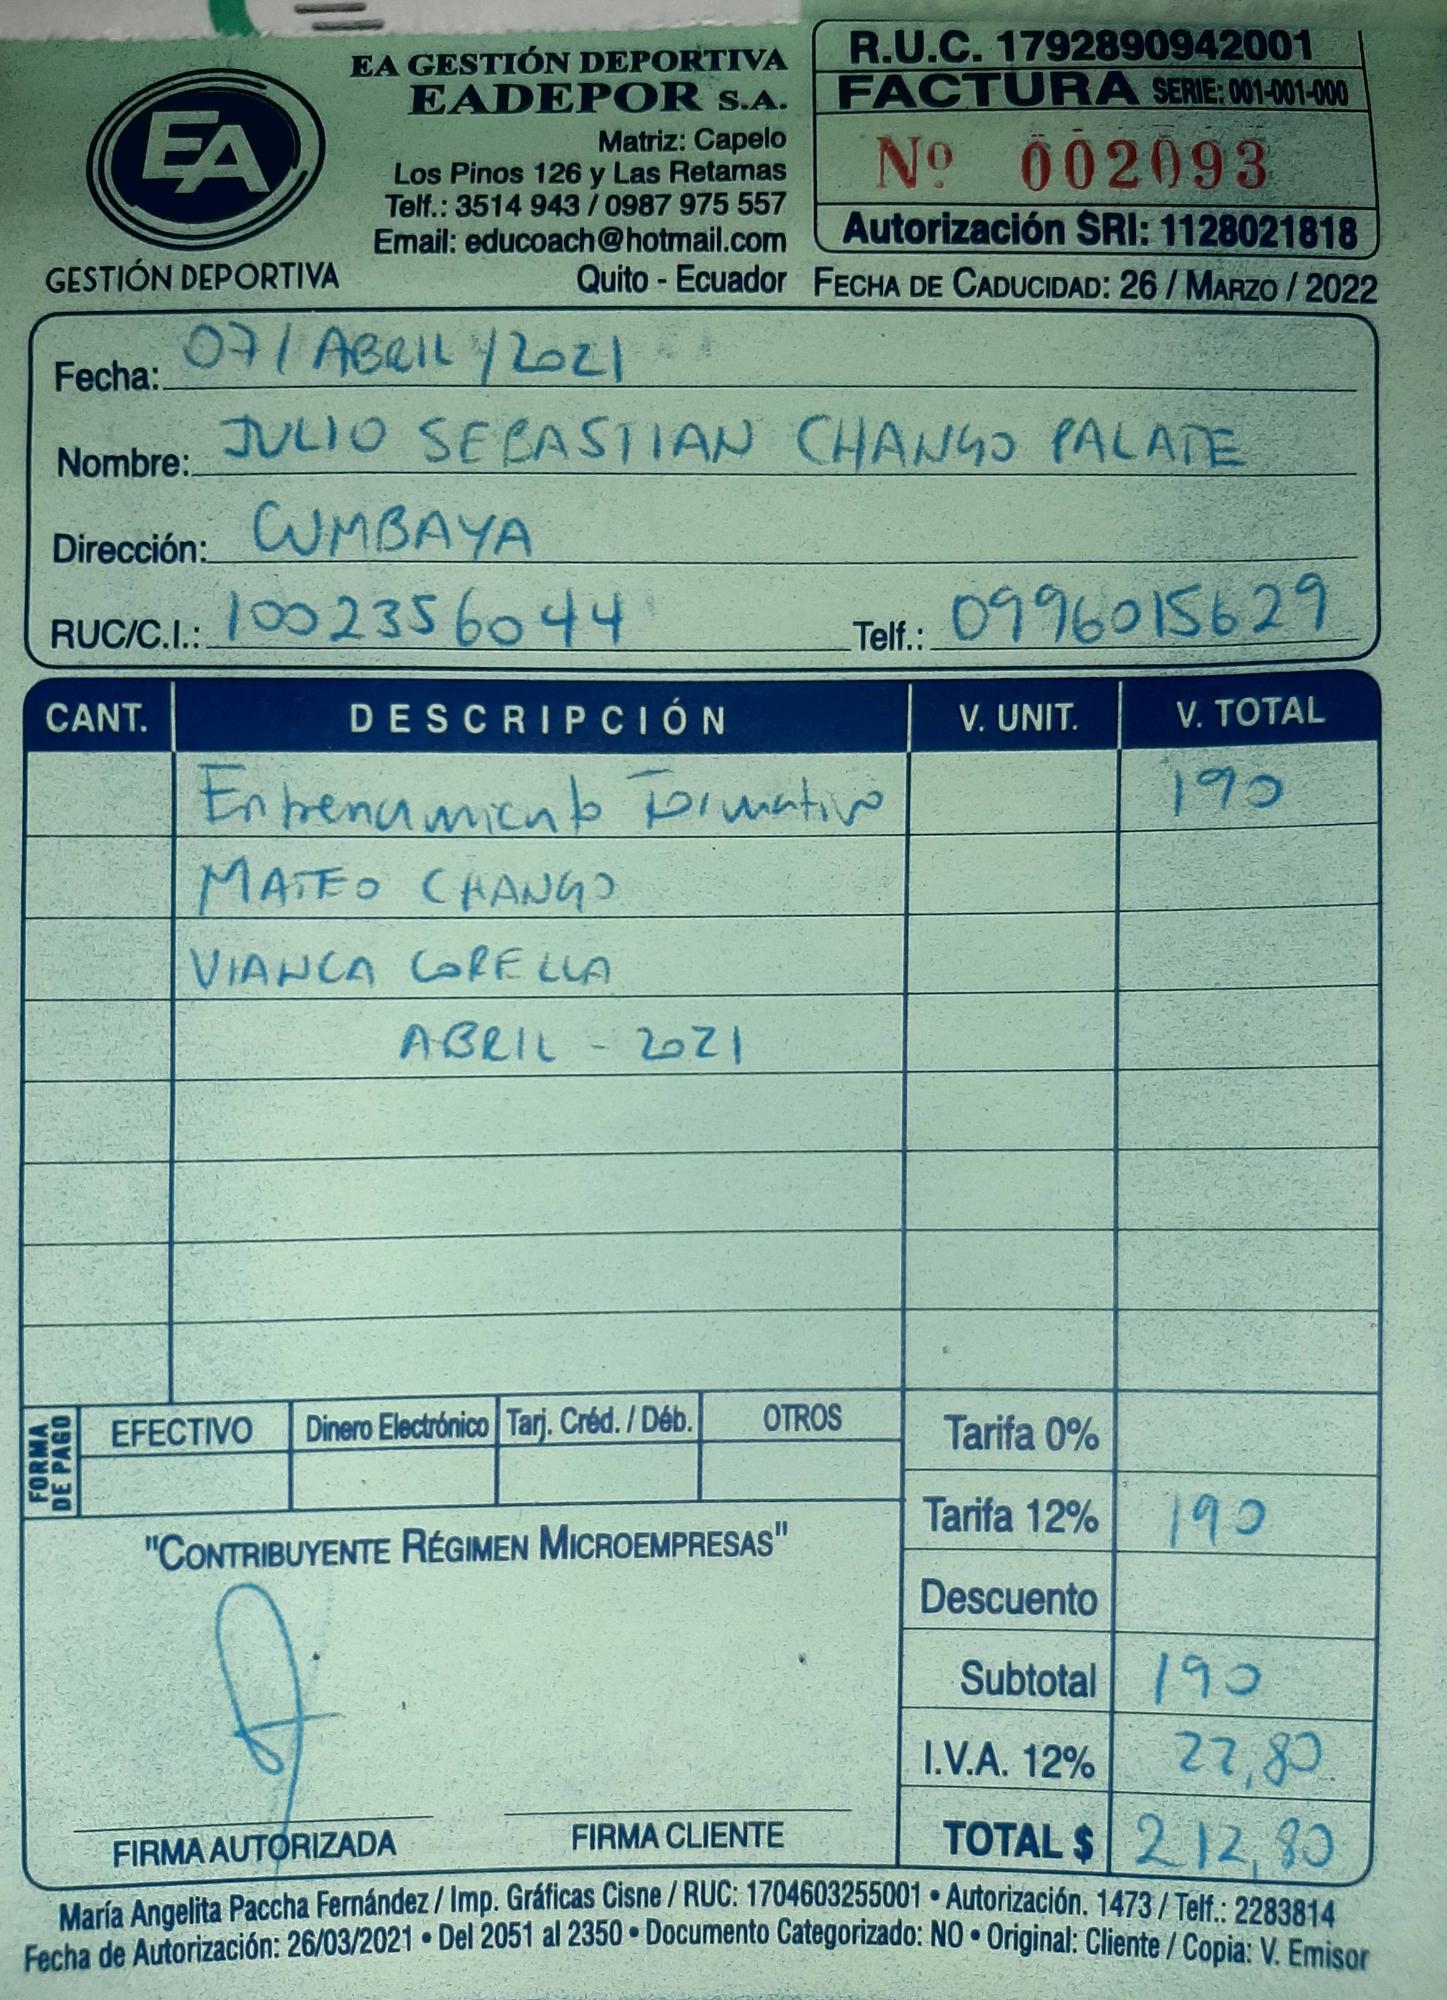 EA GESTIÓN DEPORTIVA
EADEPOR S.A.
Matriz: Capelo
Los Pinos 126 y Las Retamas
Telf.: 3514 943 / 0987 975 557
Email: educoach@hotmail.com
Quito - Ecuador
EA
GESTIÓN DEPORTIVA
R.U.C. 1792890942001
FACTURA SERIE: 001-001-000
Nº 002093
Autorización SRI: 1128021818
FECHA DE CADUCIDAD: 26 / MARZO / 2022
Fecha: 07/ABRIL/2021
Nombre: JULIO SEBASTIAN CHANGO PALATE
Dirección: CUMBAYA
RUC/C.I.: 1002356044 Telf.: 0996015629
CANT. DESCRIPCIÓN V. UNIT. V. TOTAL
Entrenamiento Formativo 190
MATEO CHANGO
VIANCA CORELLA
ABRIL - 2021
FORMA DE PAGO EFECTIVO Dinero Electrónico Tarj. Créd. / Déb. OTROS
Tarifa 0%
Tarifa 12% 190
Descuento
Subtotal 190
I.V.A. 12% 22,80
TOTAL $ 212,80
"CONTRIBUYENTE RÉGIMEN MICROEMPRESAS"
FIRMA AUTORIZADA FIRMA CLIENTE
María Angelita Paccha Fernández / Imp. Gráficas Cisne / RUC: 1704603255001 • Autorización. 1473 / Telf.: 2283814
Fecha de Autorización: 26/03/2021 • Del 2051 al 2350 • Documento Categorizado: NO • Original: Cliente / Copia: V. Emisor